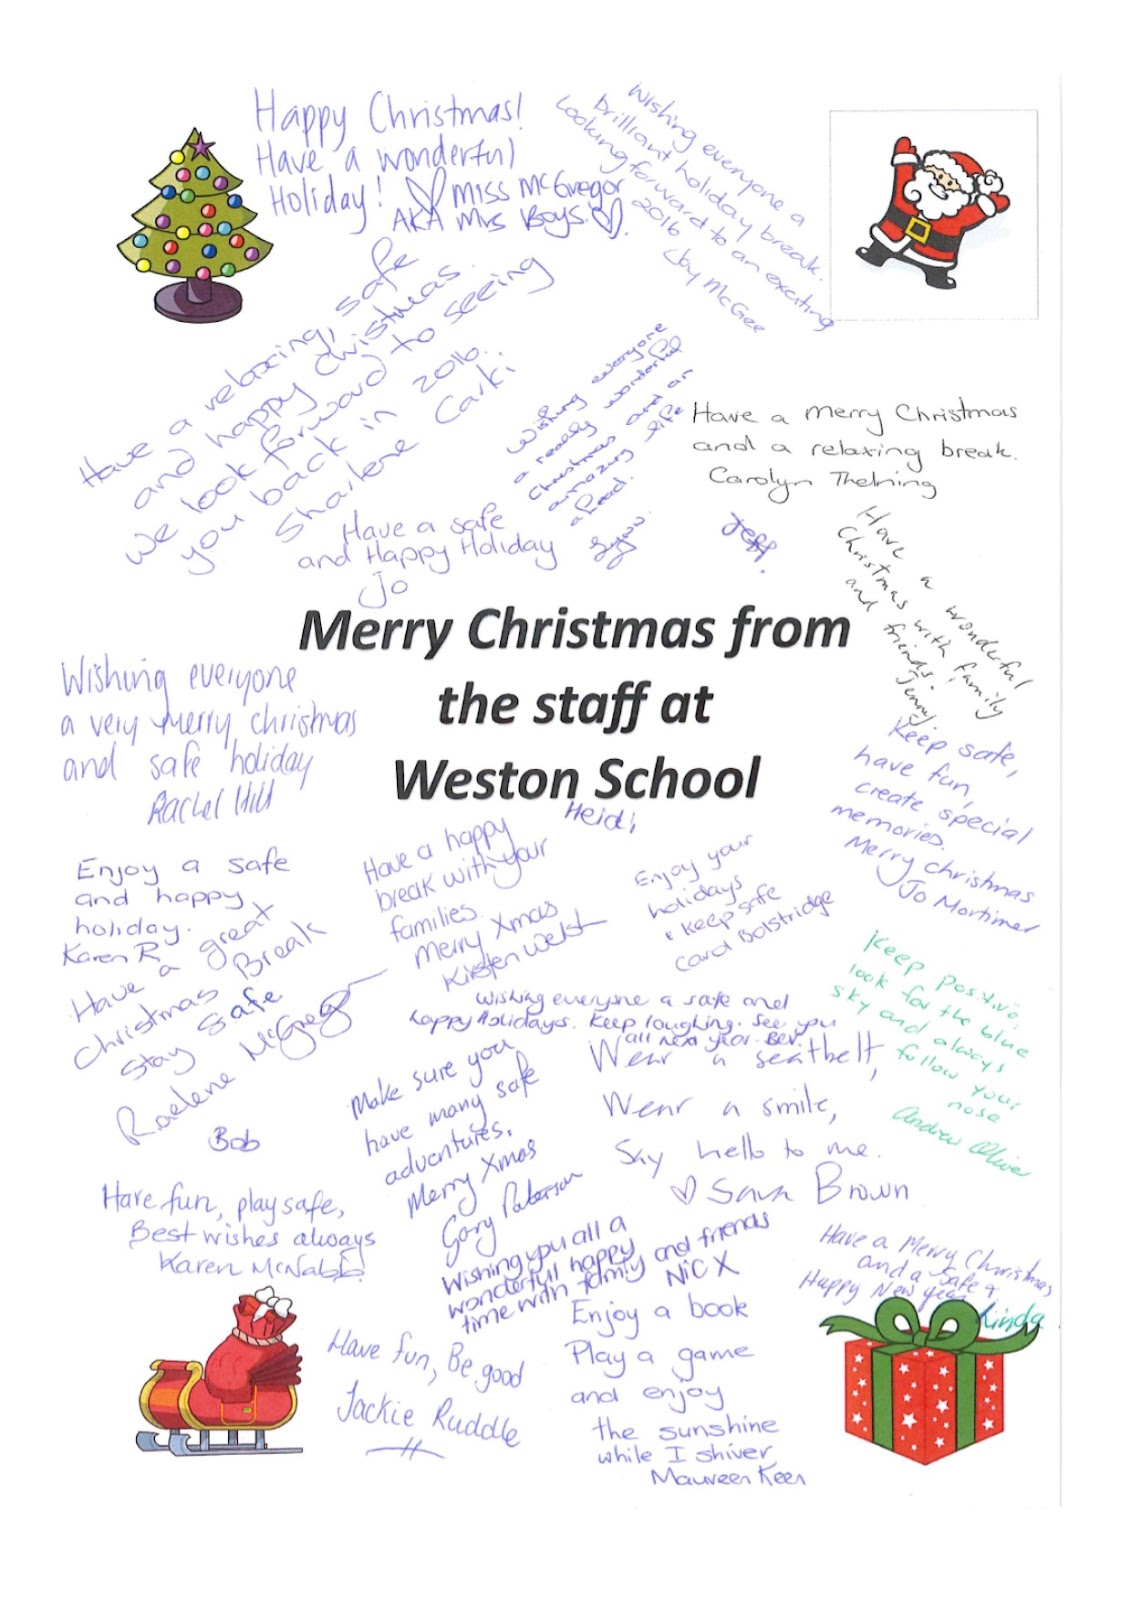 Happy Christmas!
Have a wonderful
Holiday! ♡ Miss McGregor
AKA Mrs Boys. ♡
Wishing everyone a
brilliant holiday break.
Looking forward to an exciting
2016
McGee
Have a relaxing, safe
and happy Christmas.
We look forward to seeing
you back in 2016.
Sharlene Carki
Wishing everyone
a really wonderful
Christmas and an
amazing life
ahead.
Have a Merry Christmas
and a relaxing break.
Carolyn Thelning
Have a safe
and Happy Holiday
Jo
Jeff.
Have a wonderful
Christmas with family
and friends.
Jenny
Merry Christmas from
the staff at
Weston School
Wishing everyone
a very merry christmas
and safe holiday
Rachel Hill
Keep safe,
have fun,
create special
memories.
Merry christmas
Jo Mortimer
Heidi
Enjoy a safe
and happy
holiday.
Karen R
Have a happy
break with your
families.
Merry Xmas
Kirsten Welsh
Enjoy your
holidays
& keep safe
Carol Bolstridge
Have a great
Christmas Break
Stay safe
Raelene McGregor
Wishing everyone a safe and
happy Holidays. Keep laughing. See you
all next year. Bev.
Keep positive,
look for the blue
sky and always
follow your
nose
Andrew Olive
Make sure you
have many safe
adventures.
Merry Xmas
Gary Paterson
Wear a seatbelt,
Wear a smile,
Say hello to me.
♡ Sara Brown
Bob
Have fun, play safe,
Best wishes always
Karen McNabb
Wishing you all a
wonderfull happy
time with family and friends
Nic X
Have a Merry Christmas
and a safe +
Happy New year
Linda
Have fun, Be good
Jackie Ruddle
Enjoy a book
Play a game
and enjoy
the sunshine
while I shiver
Maureen Keen